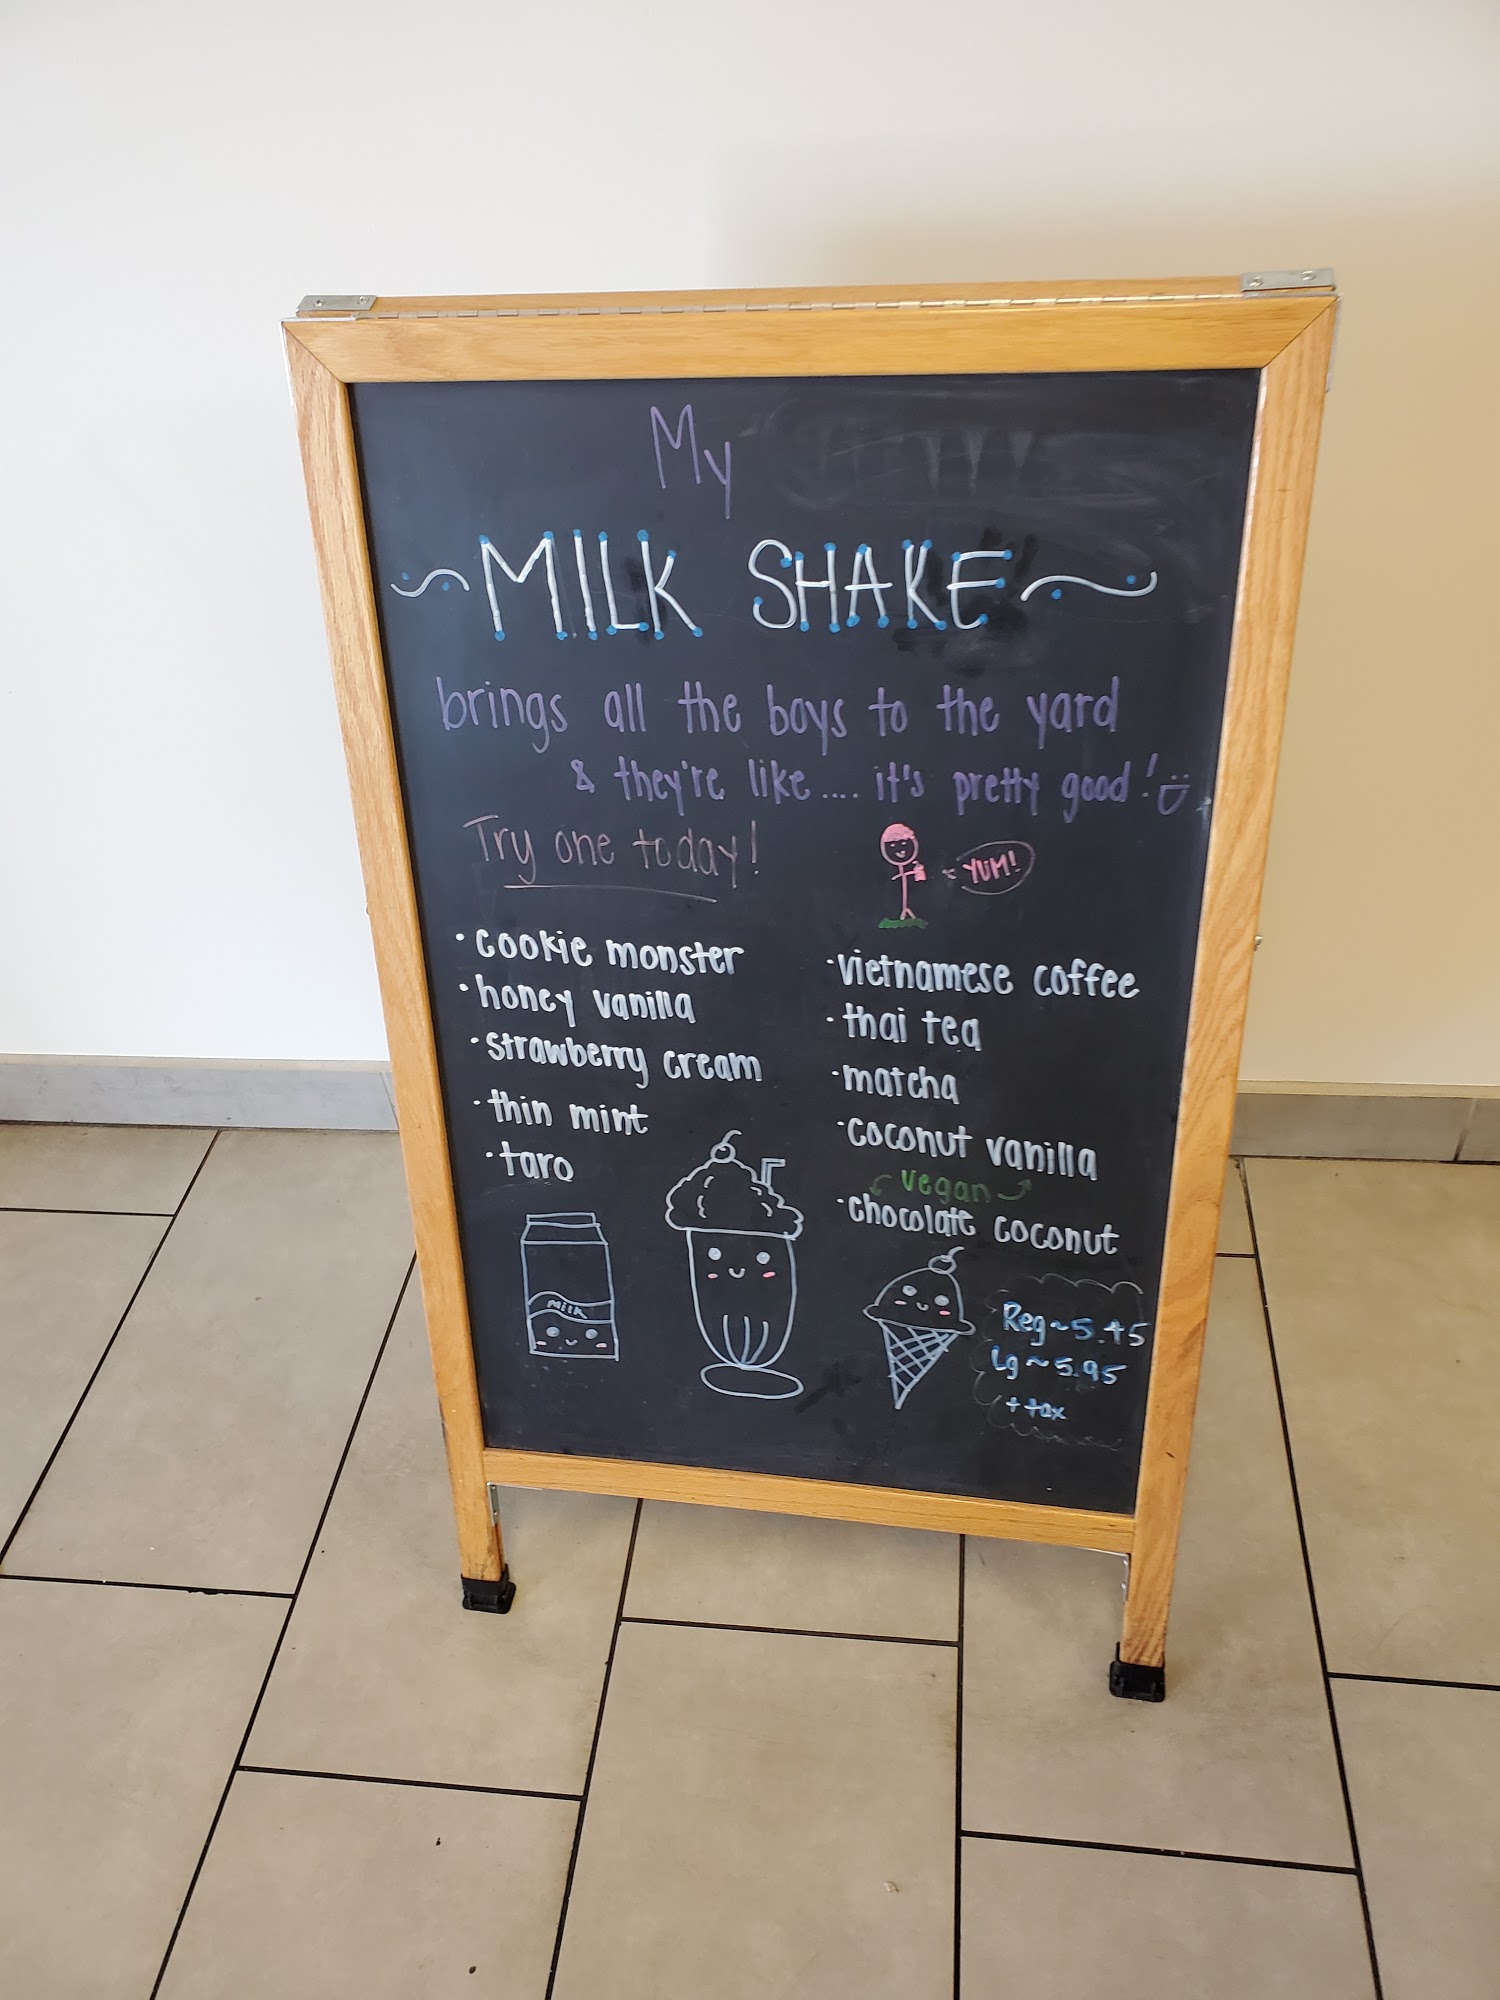 My
MILK SHAKE
brings all the boys to the yard
& they're like.... it's pretty good!
Try one today!
YUM!
• cookie monster
• honey vanilla
• strawberry cream
• thin mint
• taro
• vietnamese coffee
• thai tea
• matcha
• coconut vanilla
vegan
• chocolate coconut
MILK
Reg ~ 5.45
Lg ~ 5.95
+ tax